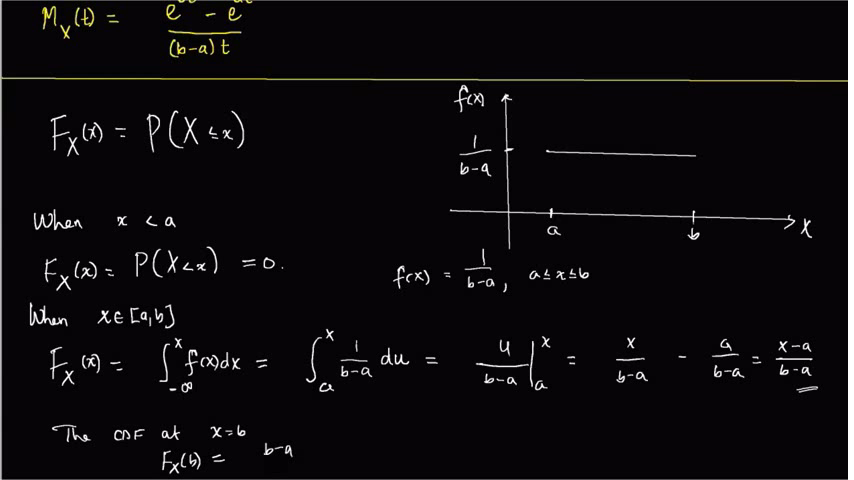 M_X(t) = e^{bt} - e^{at} / (b-a)t
F_X(x) = P(X ≤ x)
f(x)
1/(b-a)
a b X
When x < a
F_X(x) = P(X<x) = 0.
f(x) = 1/(b-a), a ≤ x ≤ b
When x ∈ [a,b]
F_X(x) = ∫_{-∞}^{x} f(x)dx = ∫_{a}^{x} 1/(b-a) du = u/(b-a) |_{a}^{x} = x/(b-a) - a/(b-a) = (x-a)/(b-a)
The CDF at x=b
F_X(b) = b-a